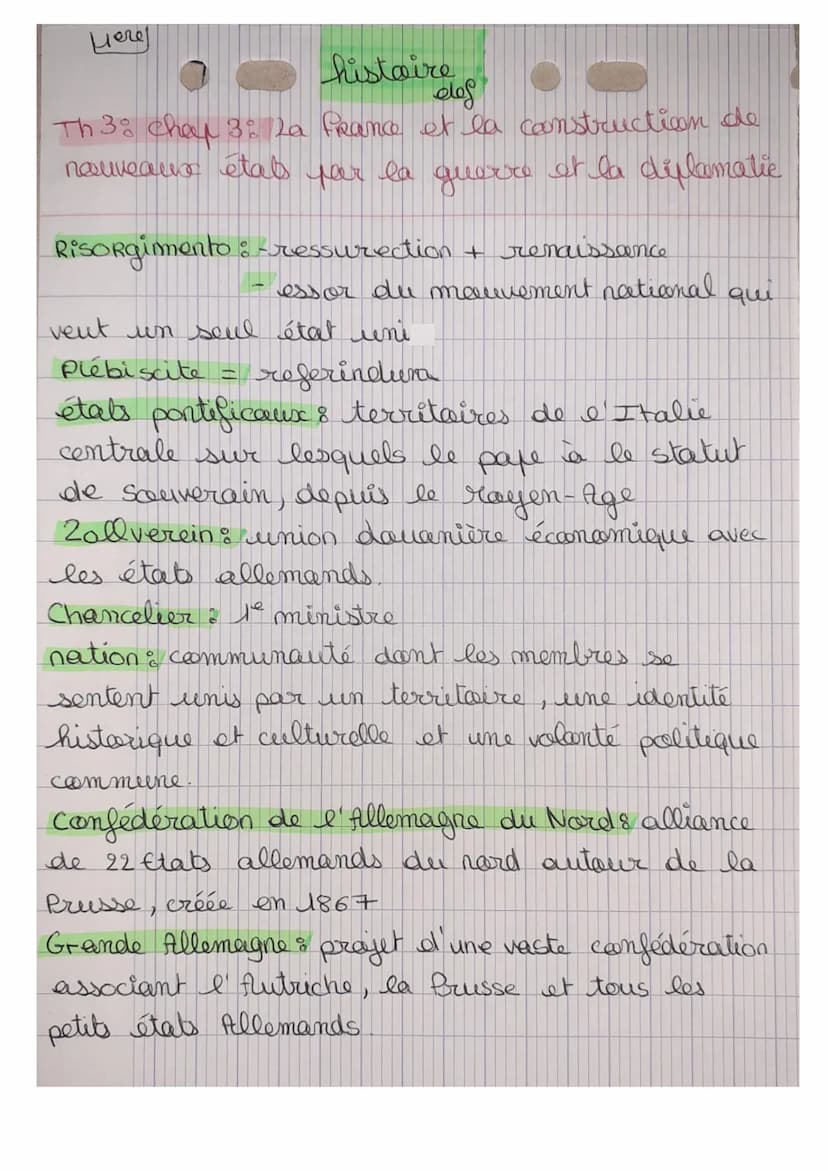 1ere
histoire
def
Th 3: chap 3: La france et la construction de
nouveaux états par la guerre et la diplomatie
Risorgimento: - ressurection + renaissance
- essor du mouvement national qui
veut un seul état uni
Plébiscite = referindum
états pontificaux: territoires de l'Italie
centrale sur lesquels le pape à le statut
de souverain, depuis le Moyen-Age
Zollverein: union douanière économique avec
les états allemands.
Chancelier: 1e ministre
nation: communauté dont les membres se
sentent unis par un territoire, une identité
historique et culturelle et une volonté politique
commune.
Confédération de l'Allemagne du Nord: alliance
de 22 Etats allemands du nord autour de la
Prusse, créée en 1867
Grande Allemagne: projet d'une vaste confédération
associant l'Autriche, la Prusse et tous les
petits états Allemands.